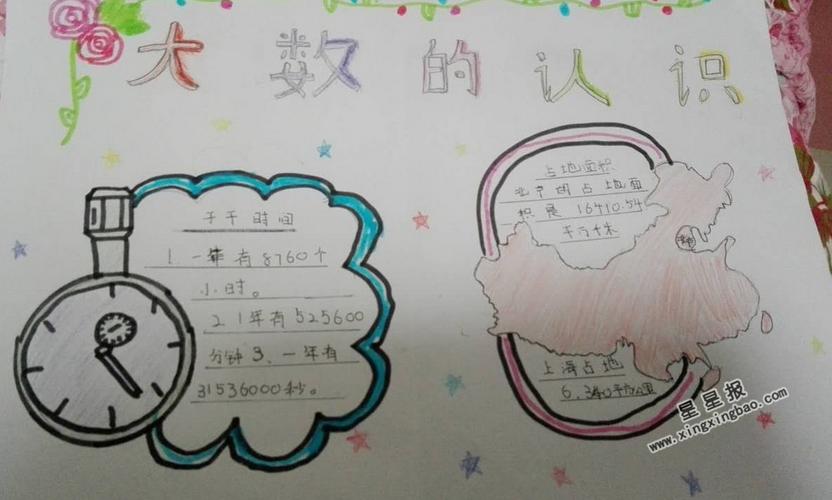 大数的认识
时间
1.一年有8760个
小时。
2.1年有525600
分钟3、一年有
31536000秒。
占地面积
北京的占地面
积是16410.54
千米
上海占地
6,340平方公里
星星报
www.xingxingbao.com